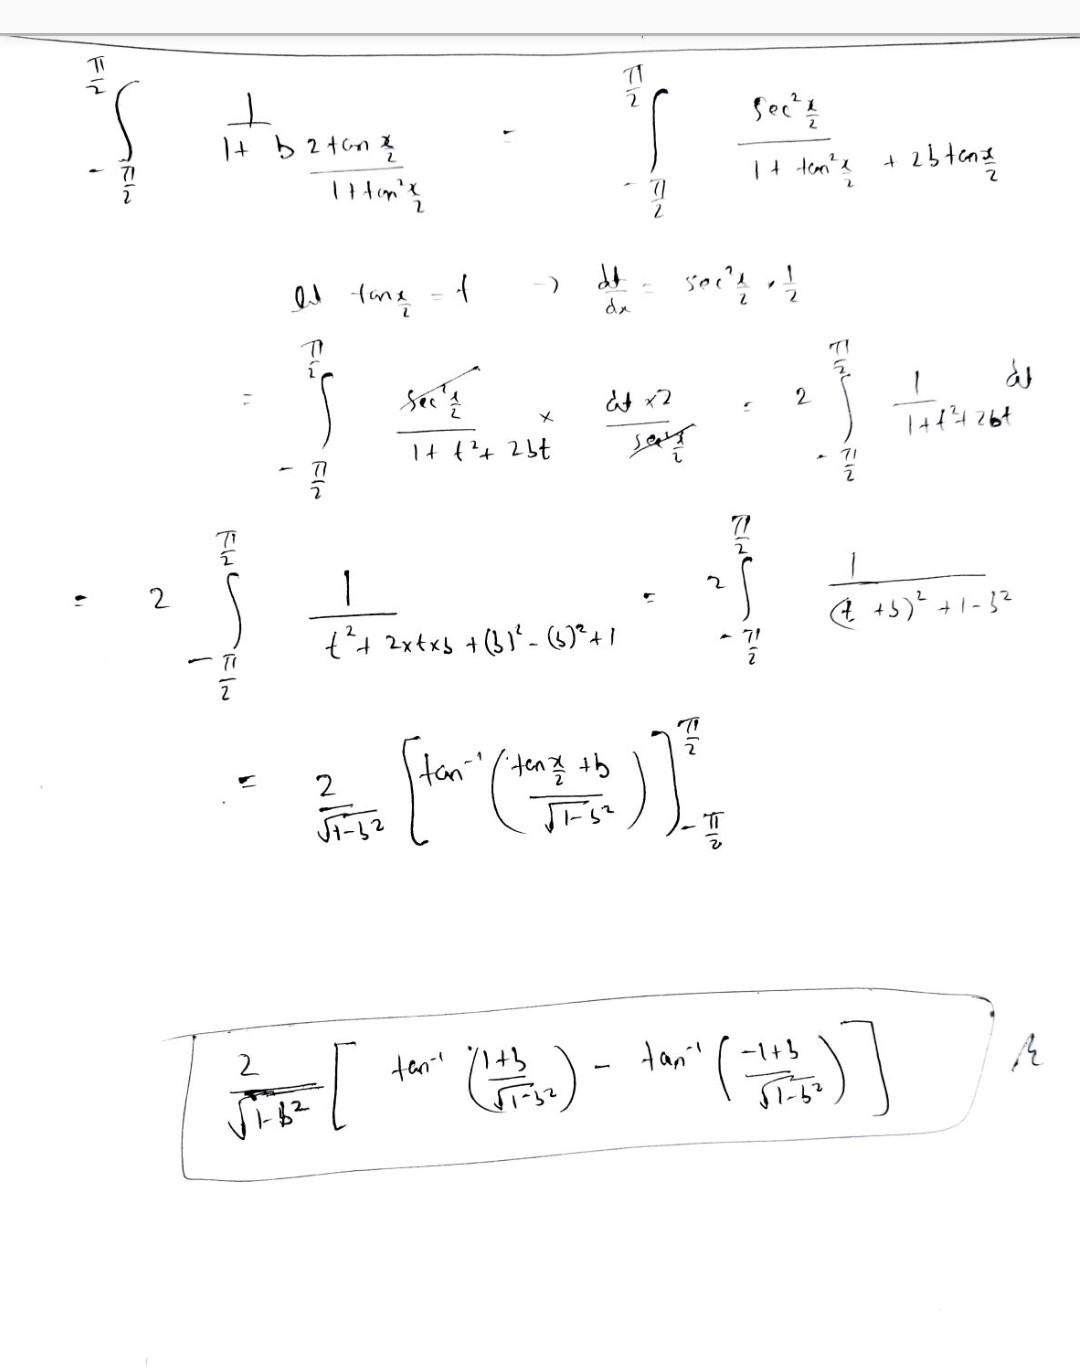 ∫_{-π/2}^{π/2} 1/(1 + b (2 tan x/2)/(1 + tan² x/2)) = ∫_{-π/2}^{π/2} (sec² x/2)/(1 + tan² x/2 + 2b tan x/2)
let tan x/2 = t → dt/dx = sec² x/2 · 1/2
= ∫_{-π/2}^{π/2} (sec² x/2)/(1 + t² + 2bt) × (dt × 2)/(sec² x/2) = 2 ∫_{-π/2}^{π/2} 1/(1 + t² + 2bt) dt
= 2 ∫_{-π/2}^{π/2} 1/(t² + 2×t×b + (b)² - (b)² + 1) = 2 ∫_{-π/2}^{π/2} 1/((t + b)² + 1 - b²)
= 2/√(1-b²) [tan⁻¹((tan x/2 + b)/√(1-b²))]_{-π/2}^{π/2}
2/√(1-b²) [tan⁻¹((1+b)/√(1-b²)) - tan⁻¹((-1+b)/√(1-b²))]